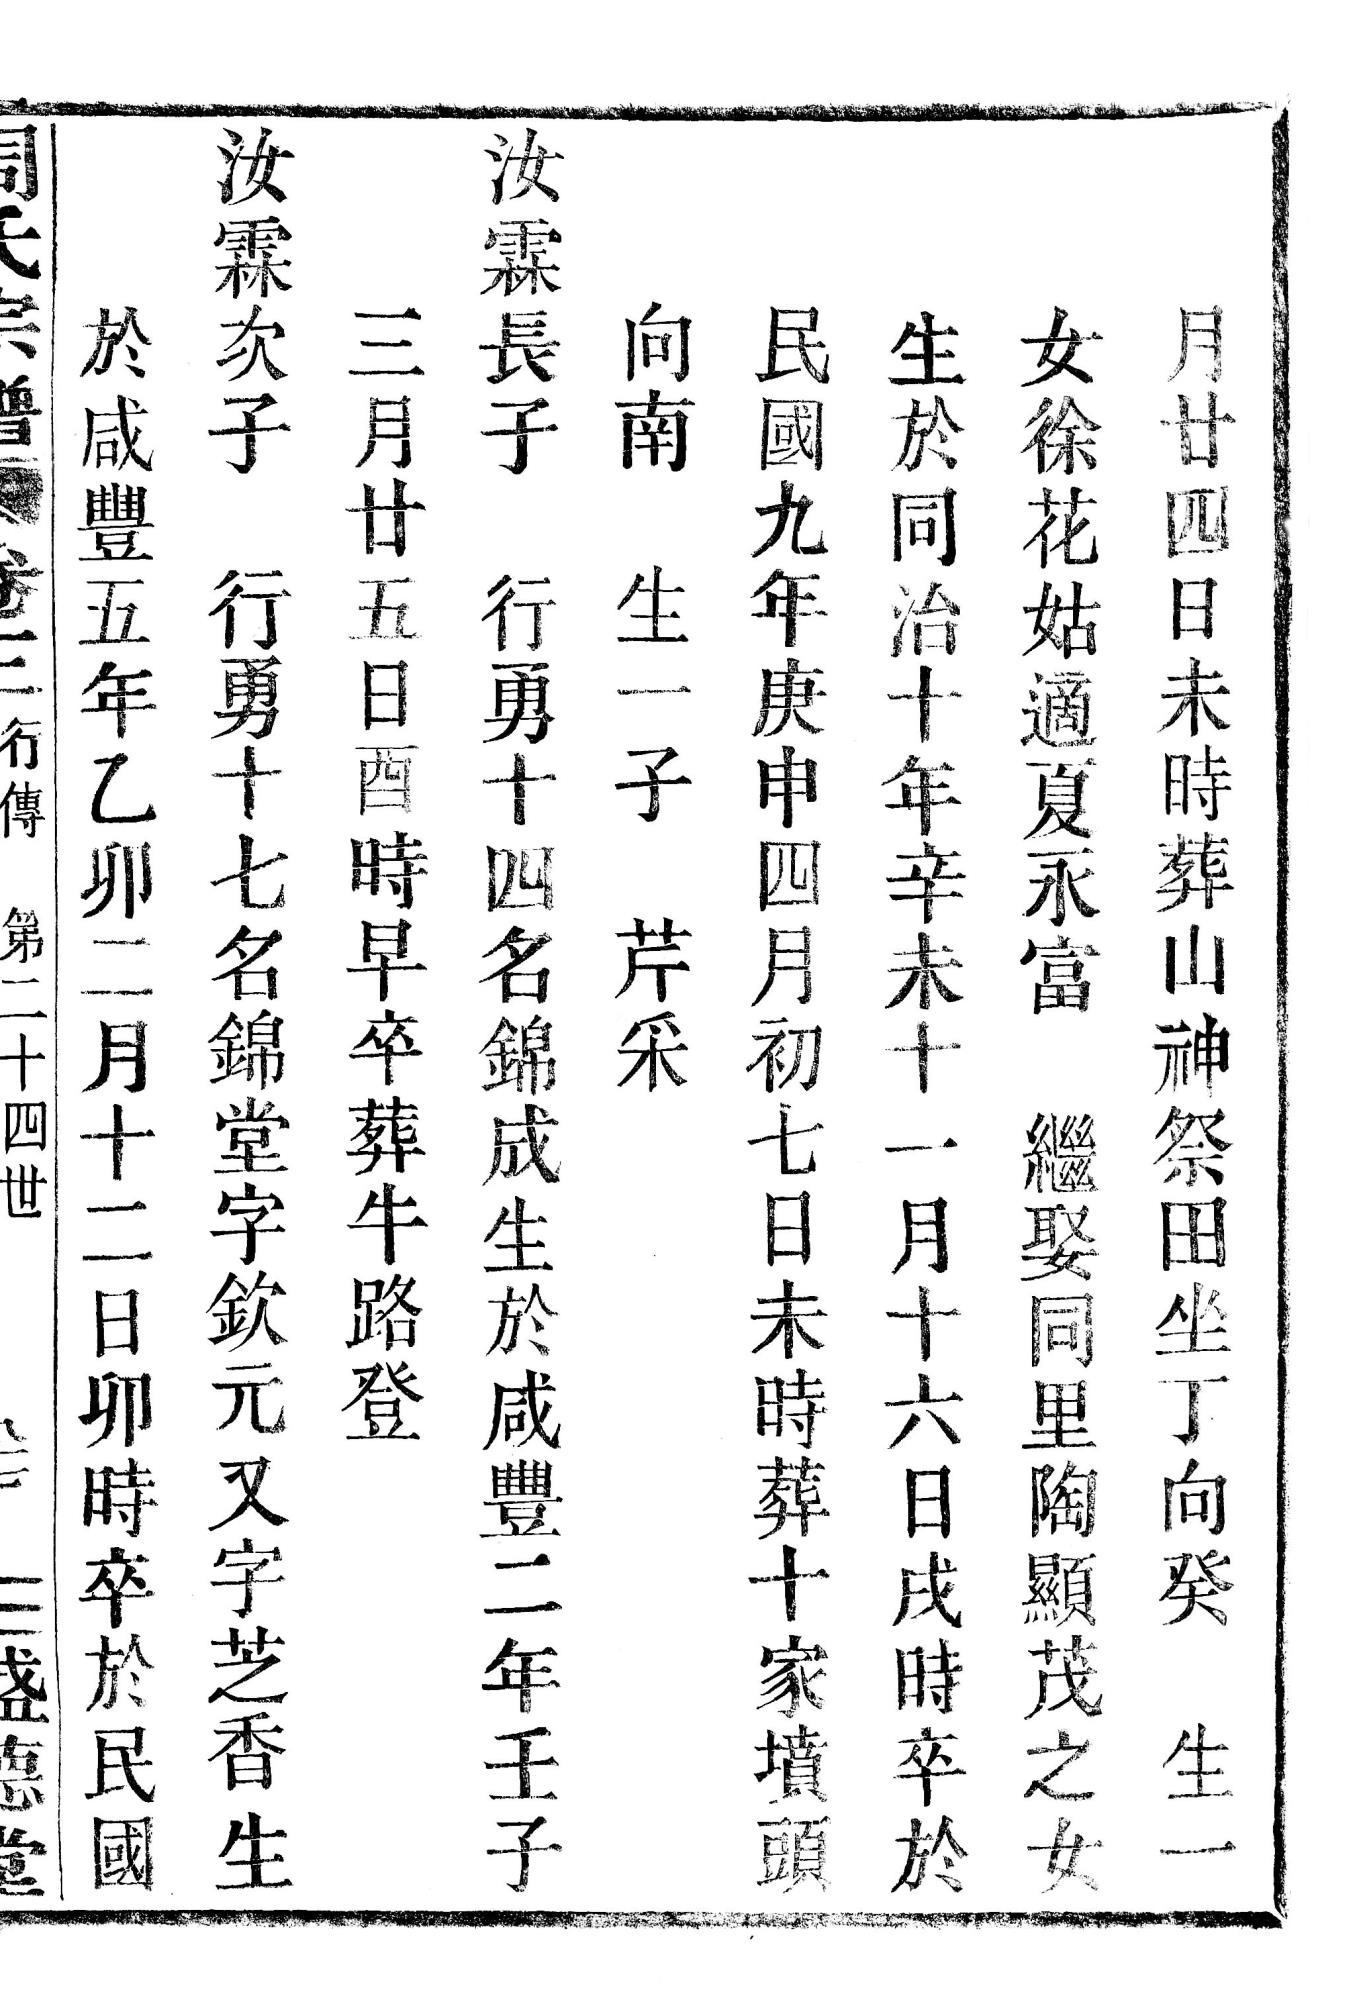 月廿四日未時葬山神祭田坐丁向癸　生一
女徐花姑適夏永富　繼娶同里陶顯茂之女
生於同治十年辛未十一月十六日戌時卒於
民國九年庚申四月初七日未時葬十家墳頭
向南　生一子　芹采
汝霖長子　行勇十四名錦成生於咸豐二年壬子
三月廿五日酉時早卒葬牛路登
汝霖次子　行勇十七名錦堂字欽元又字芝香生
於咸豐五年乙卯二月十二日卯時卒於民國
周氏宗譜 卷二 行傳　第二十四世　盛德堂